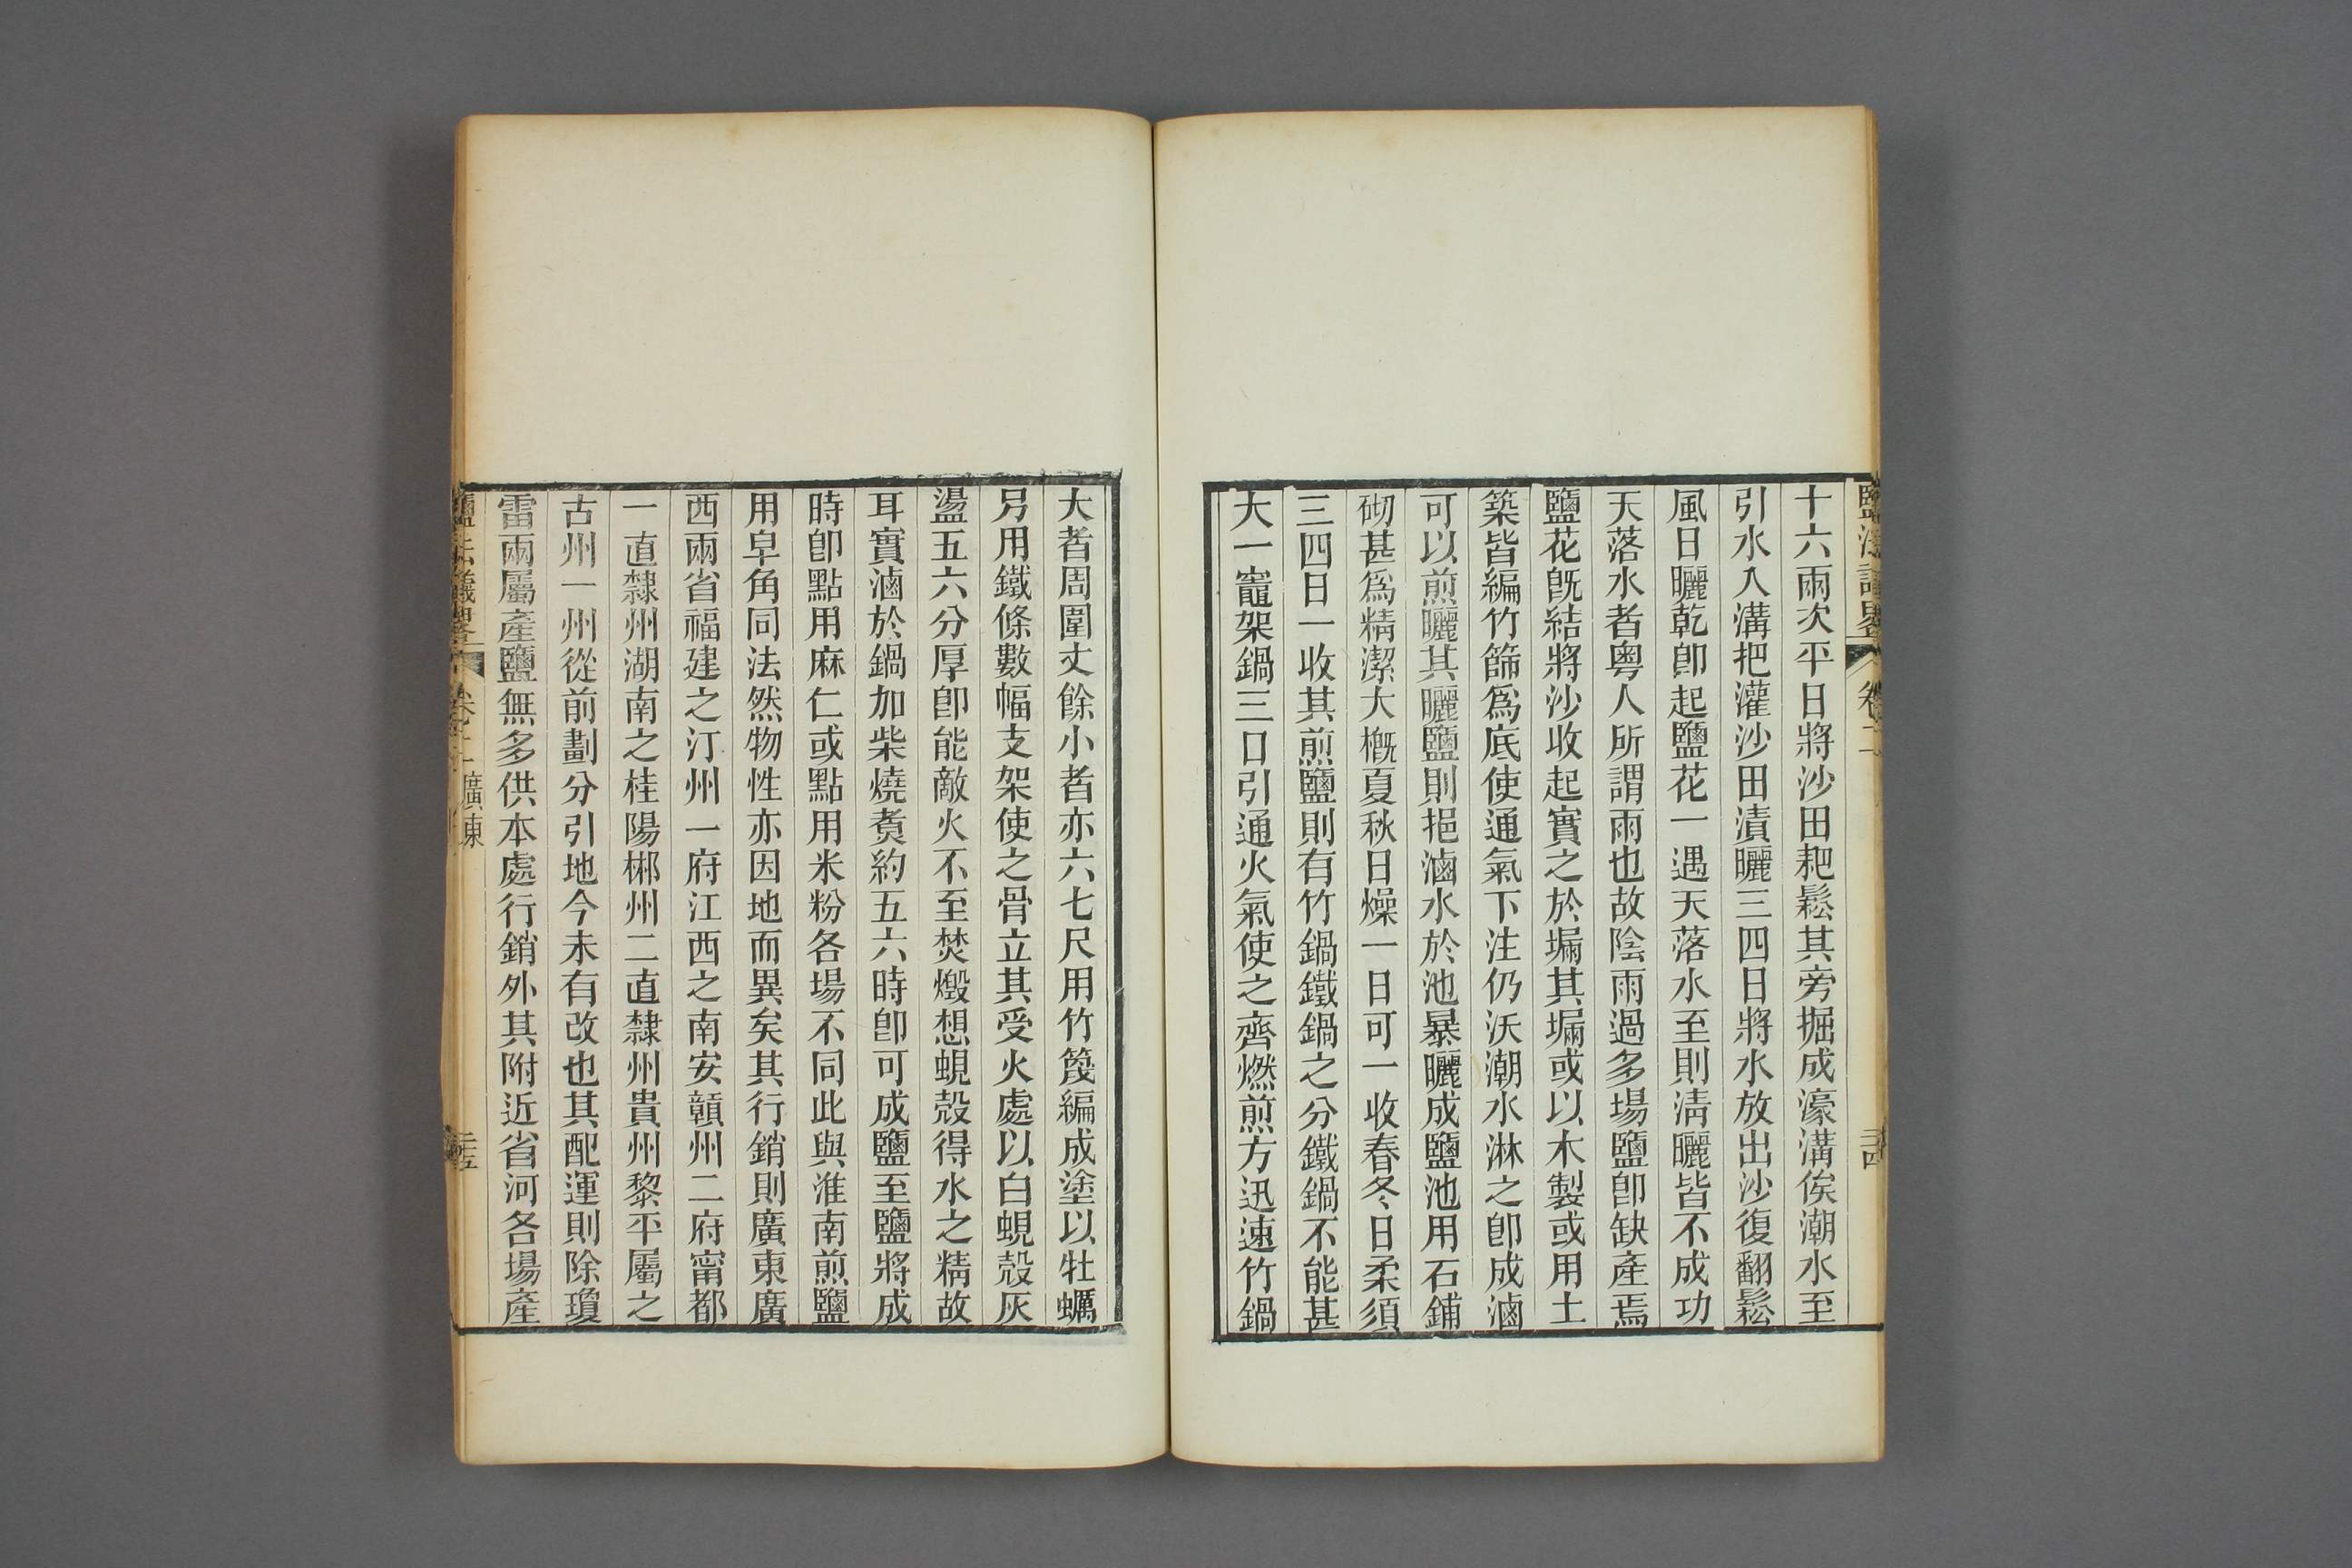 鹽法議畧 卷二 三四
十六兩次平日將沙田耙鬆其旁掘成濠溝俟潮水至
引水入溝把灌沙田漬曬三四日將水放出沙復翻鬆
風日曬乾卽起鹽花一遇天落水至則淸曬皆不成功
天落水者粤人所謂雨也故陰雨過多場鹽卽缺產焉
鹽花旣結將沙收起實之於塥其塥或以木製或用土
築皆編竹篩爲底使通氣下注仍沃潮水淋之卽成滷
可以煎曬其曬鹽則挹滷水於池暴曬成鹽池用石鋪
砌甚爲精潔大槪夏秋日燥一日可一收春冬日柔須
三四日一收其煎鹽則有竹鍋鐵鍋之分鐵鍋不能甚
大一竈架鍋三口引通火氣使之齊燃煎方迅速竹鍋
大者周圍丈餘小者亦六七尺用竹篾編成塗以牡蠣
另用鐵條數幅支架使之骨立其受火處以白蜆殼灰
盪五六分厚卽能敵火不至焚燬想蜆殼得水之精故
耳實滷於鍋加柴燒煑約五六時卽可成鹽至鹽將成
時卽點用麻仁或點用米粉各場不同此與淮南煎鹽
用皁角同法然物性亦因地而異矣其行銷則廣東廣
西兩省福建之汀州一府江西之南安贛州二府甯都
一直隸州湖南之桂陽郴州二直隸州貴州黎平屬之
古州一州從前劃分引地今未有改也其配運則除瓊
雷兩屬產鹽無多供本處行銷外其附近省河各場產
鹽法議畧 卷二 廣東 三五